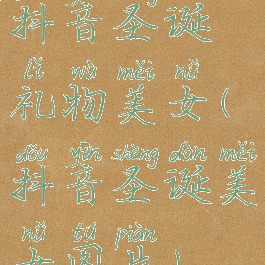 抖音圣诞
lǐ wù měi nǚ
礼物美女(
dǒu yīn shèng dàn měi
抖音圣诞美
nǚ tú piàn
女图片)